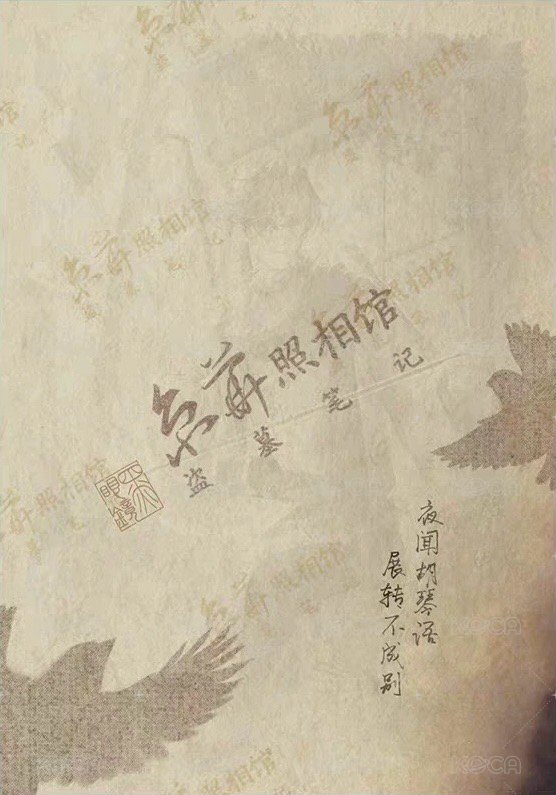 照相馆
盗墓笔记
夜闻胡琴语
展转不成别
KOCA